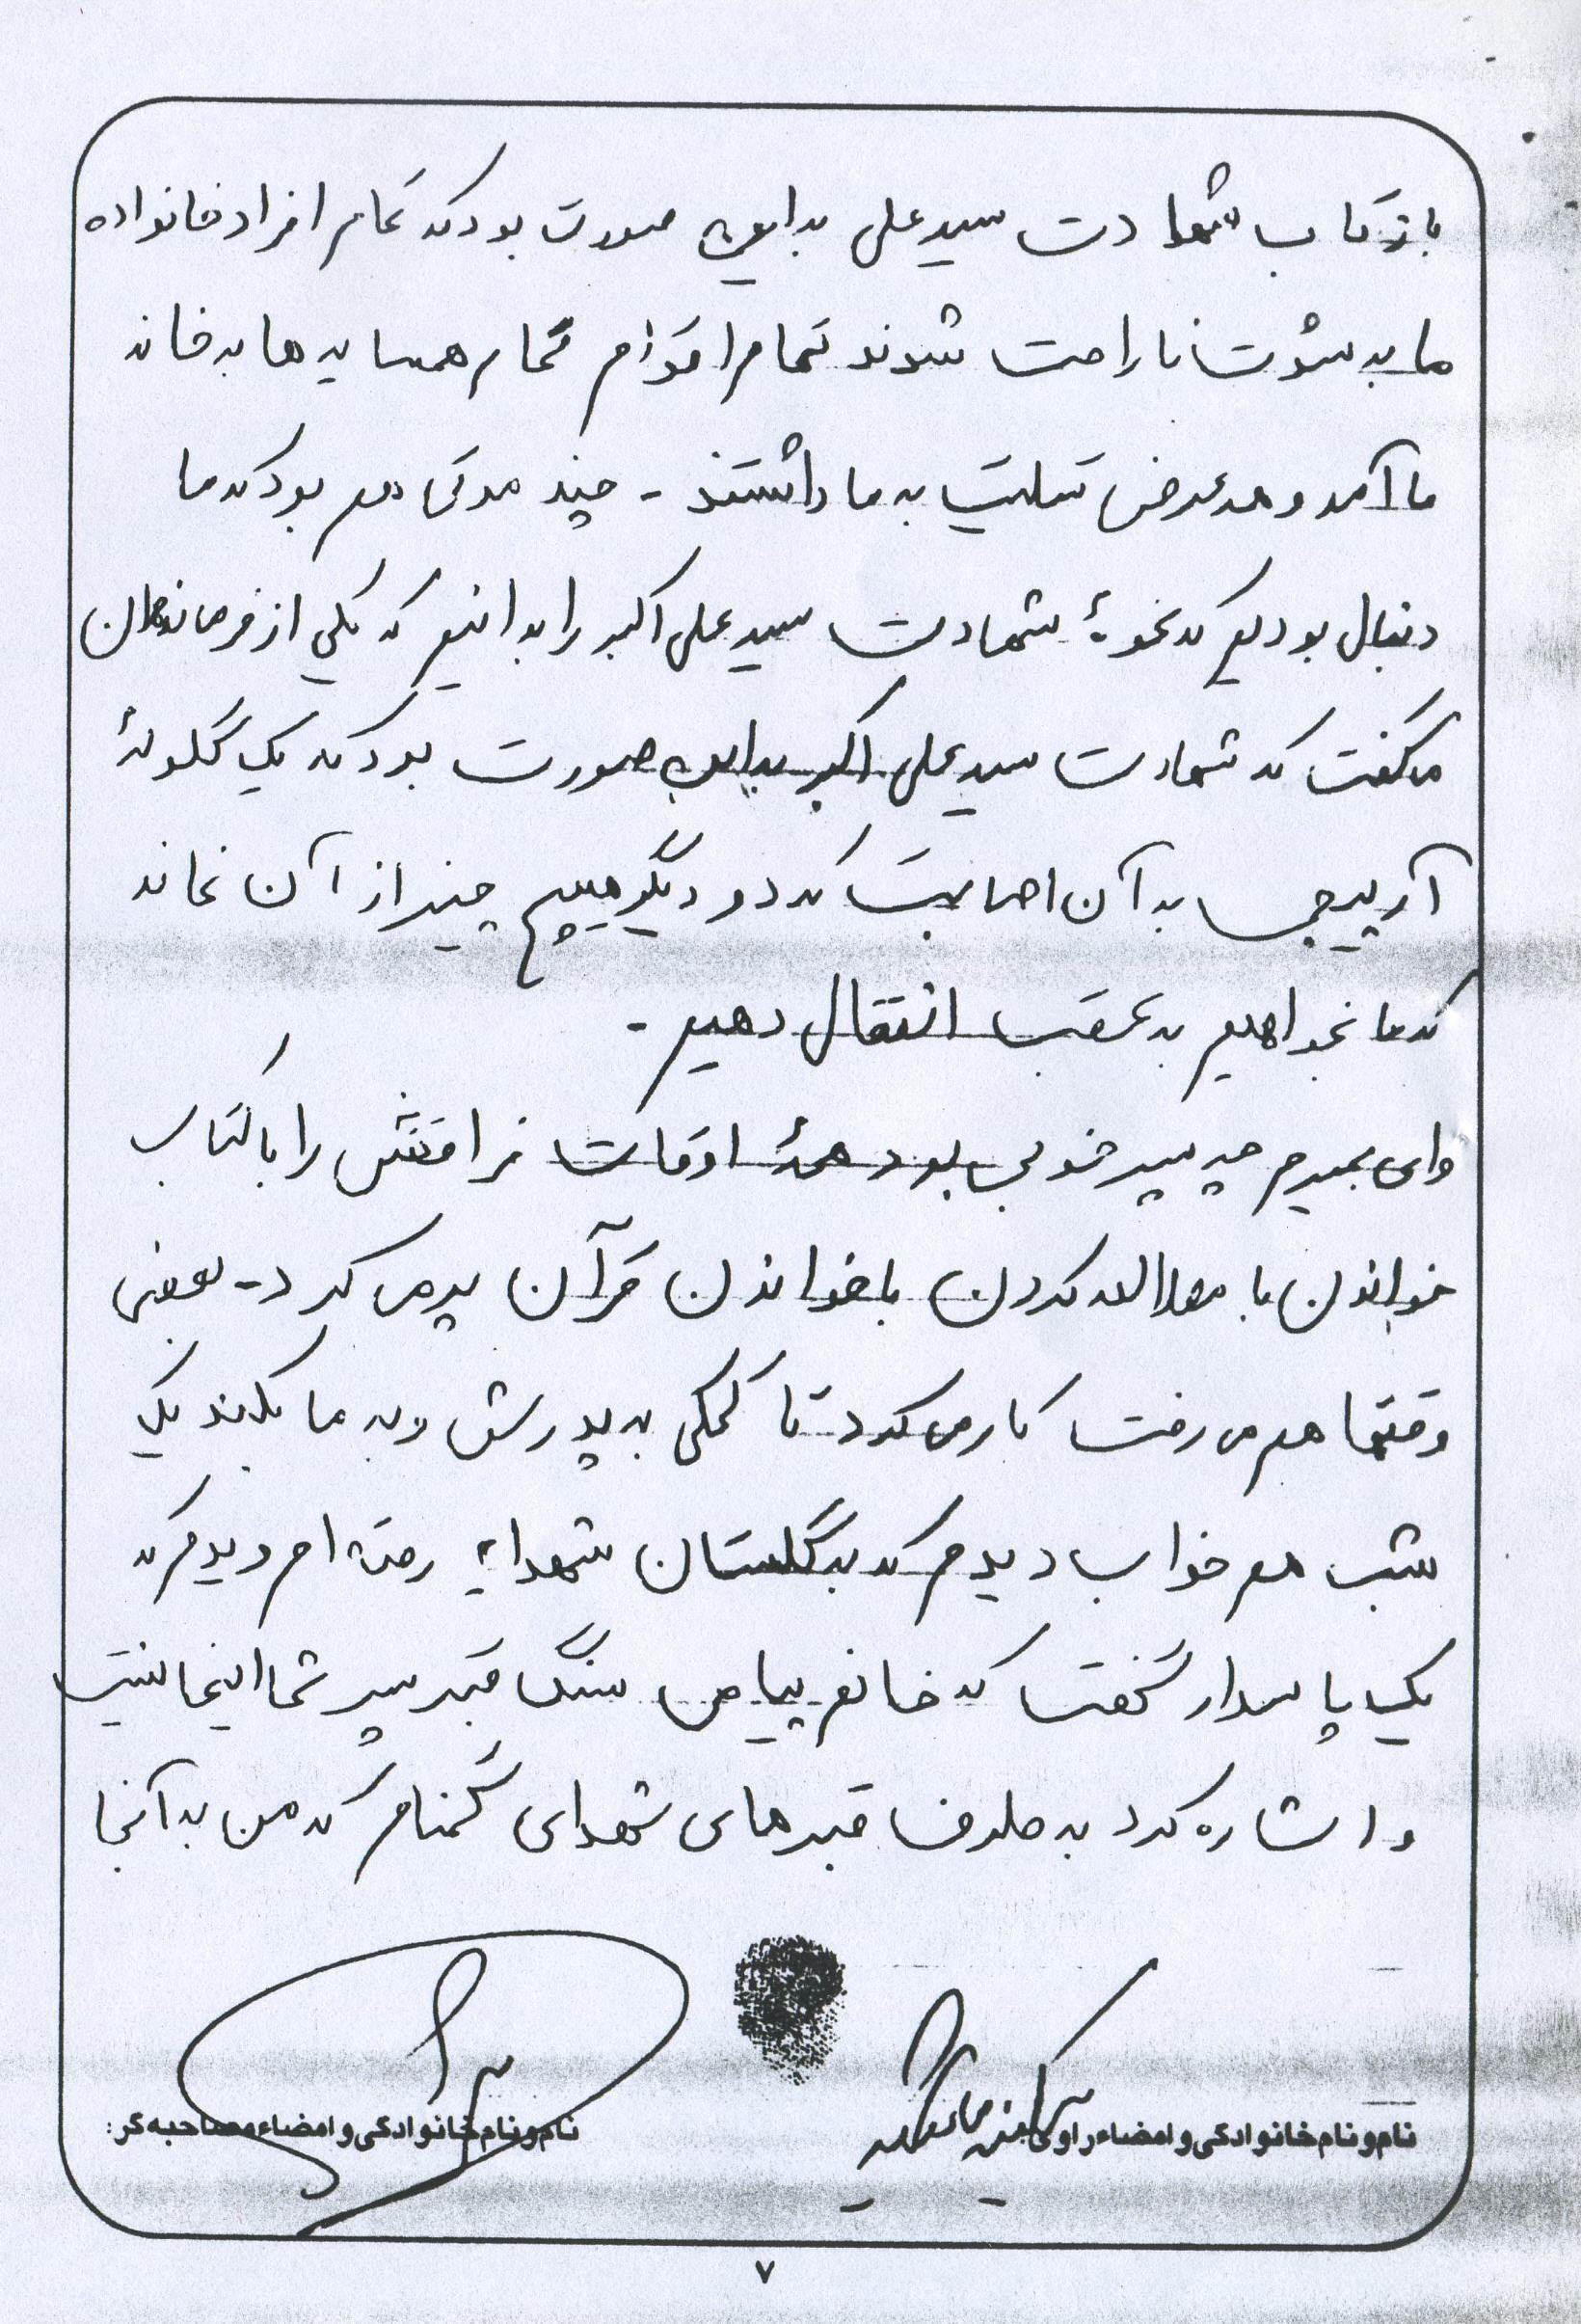 بازتاب شهادت سید علی به این صورت بود که تمام افراد خانواده
ما به شدت ناراحت شدند تمام اقوام تمام همسایه ها به خانه
ما آمد و همه عرض تسلیت به ما داشتند - چند مدتی هم بود که ما
دنبال بودیم که نحوهٔ شهادت سید علی اکبر را بدانیم که یکی از فرماندهان
می گفت که شهادت سید علی اکبر به این صورت بود که یک گلولهٔ
آرپیجی به آن اصابت کرد و دیگر هیچ چیز از آن نماند
که ما بخواهیم به عقب انتقال دهیم -
وای بمیرم چه پسر خوبی بود همهٔ اوقات فراغتش را با کتاب
خواندن با مطالعه کردن با خواندن قرآن پر می کرد - بعضی
وقتها هم می رفت کار می کرد تا کمکی به پدرش و به ما بکند یک
شب هم خواب دیدم که به گلستان شهدا رفته ام دیدم که
یک پاسدار گفت که خانم پیامی سنگ قبر پسر شما اینجا نیست
و اشاره کرد به طرف قبرهای شهدای گمنام که من به آنجا
نام و نام خانوادگی و امضاء راوی
نام و نام خانوادگی و امضاء مصاحبه گر:
۷